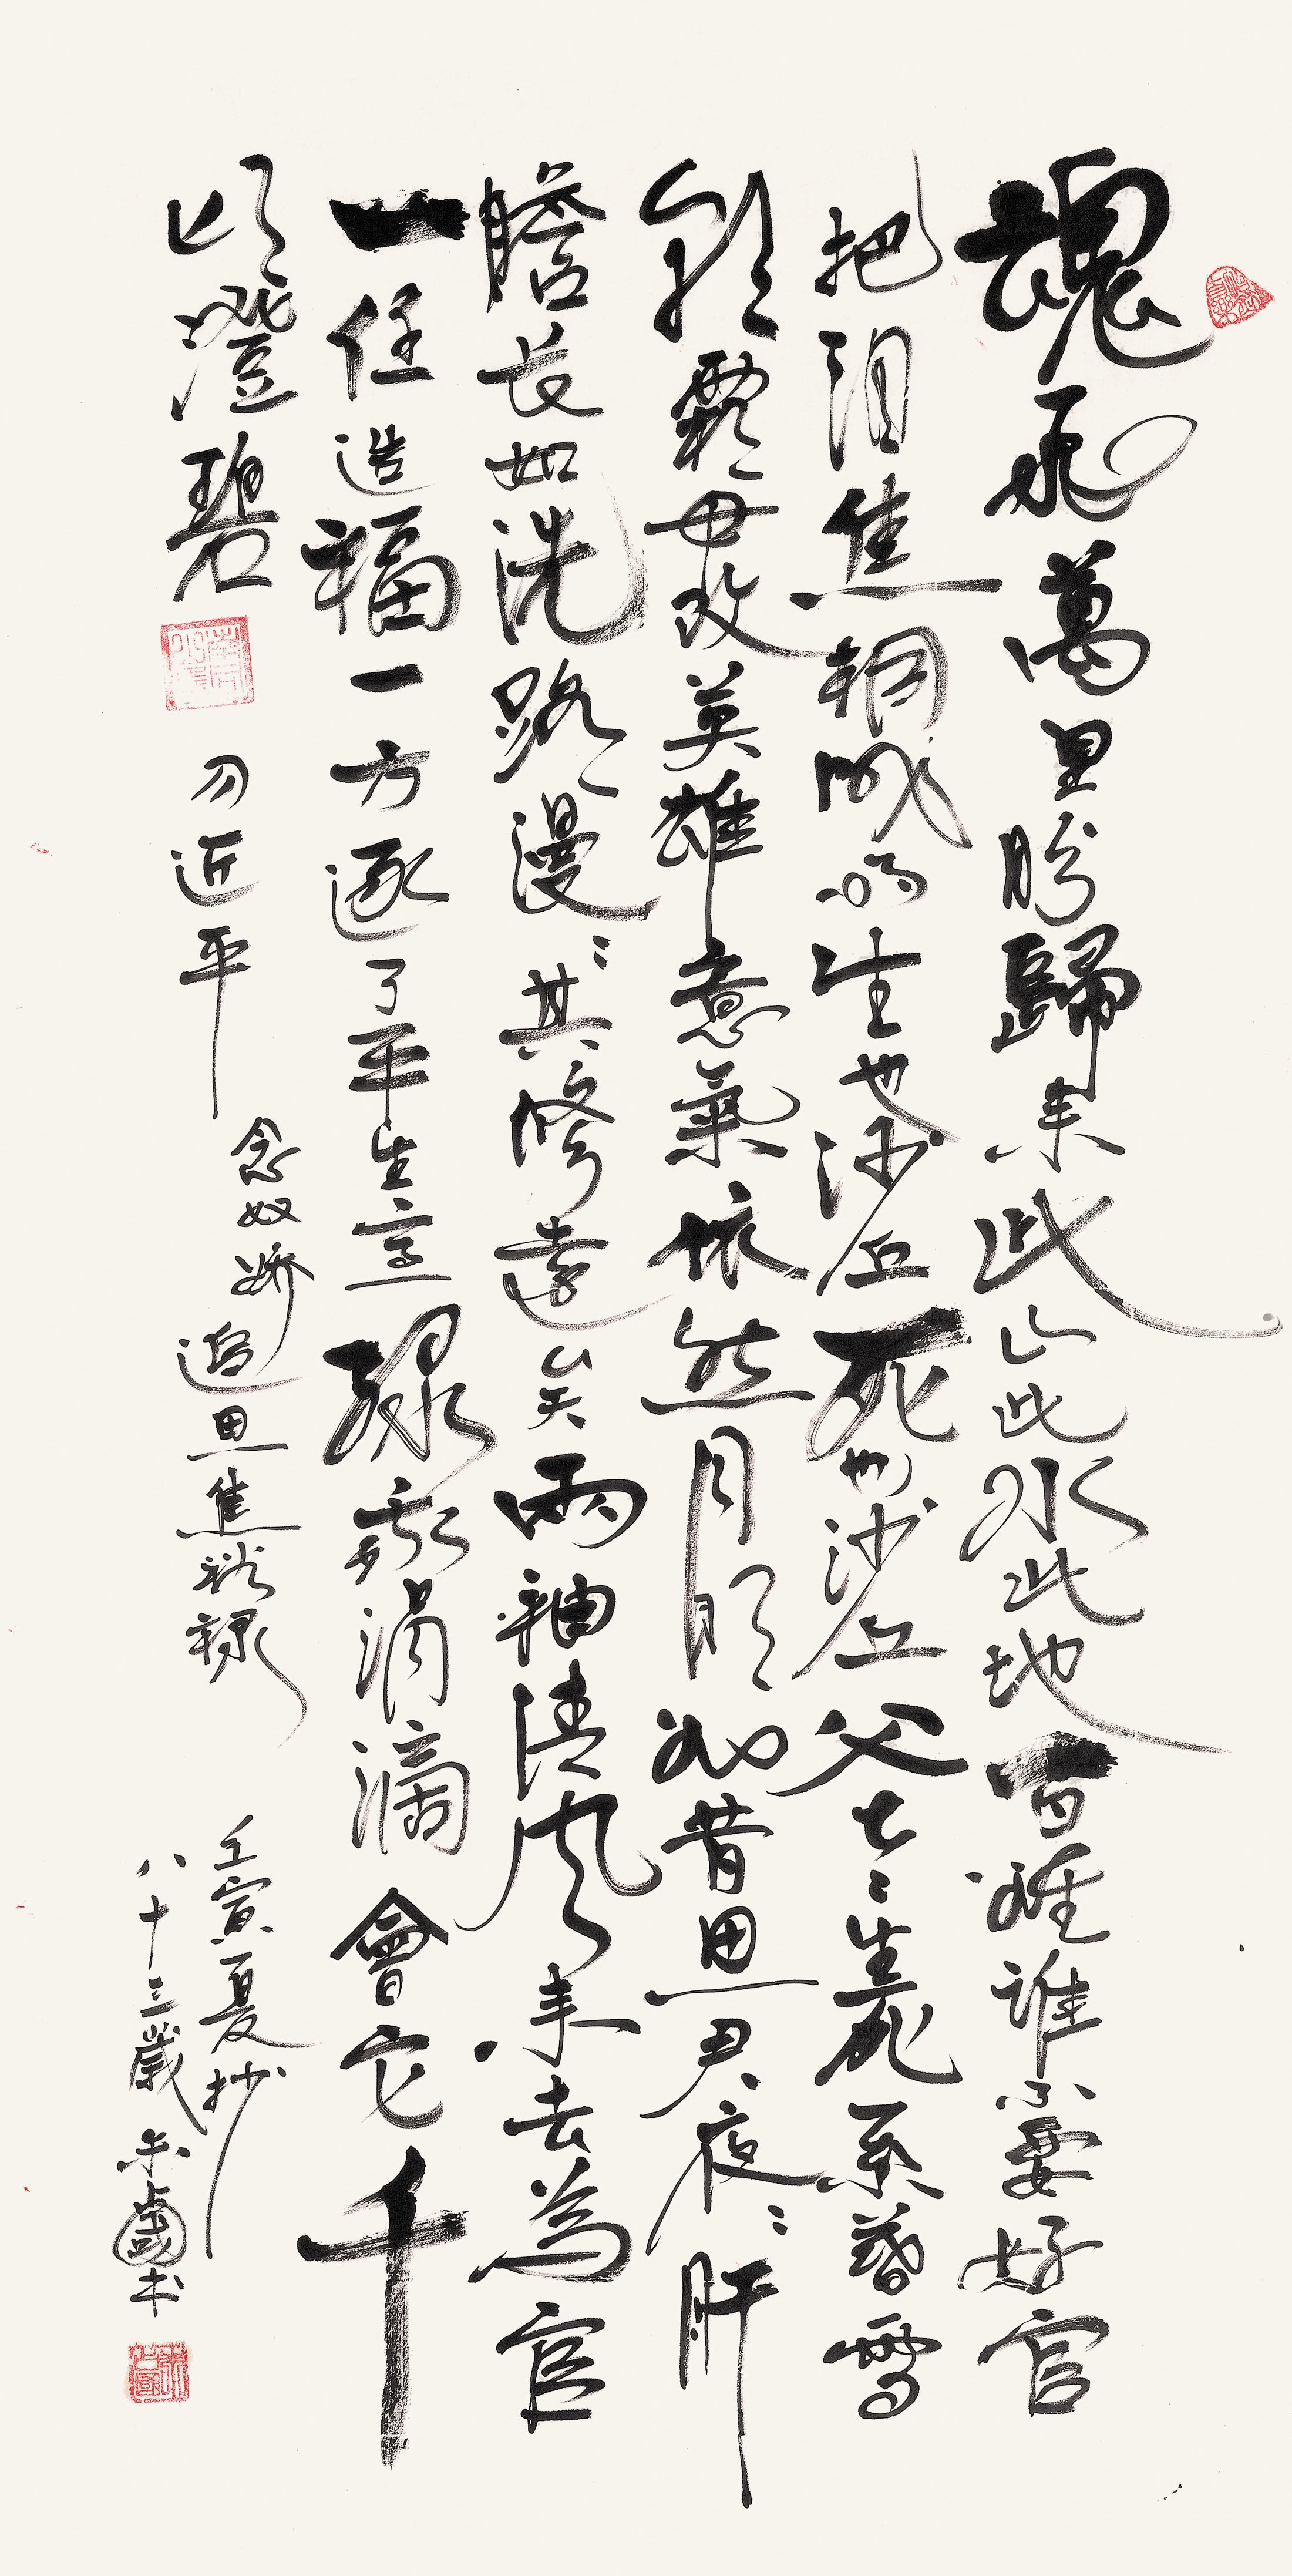 魂飛萬里盼歸来此山此水此地百姓誰不愛好官
把泪焦桐成雨生也沙丘死也沙丘父老〻生死系暮雪
朝霜毋改英雄意氣依然月明如昔思君夜〻肝
膽长如洗路漫〻其修遠矣兩袖清風来去為官
一任造福一方遂了平生意綠我涓滴會它千
頃澄碧
习近平
念奴娇
追思焦裕禄
壬寅夏抄
八十三歲